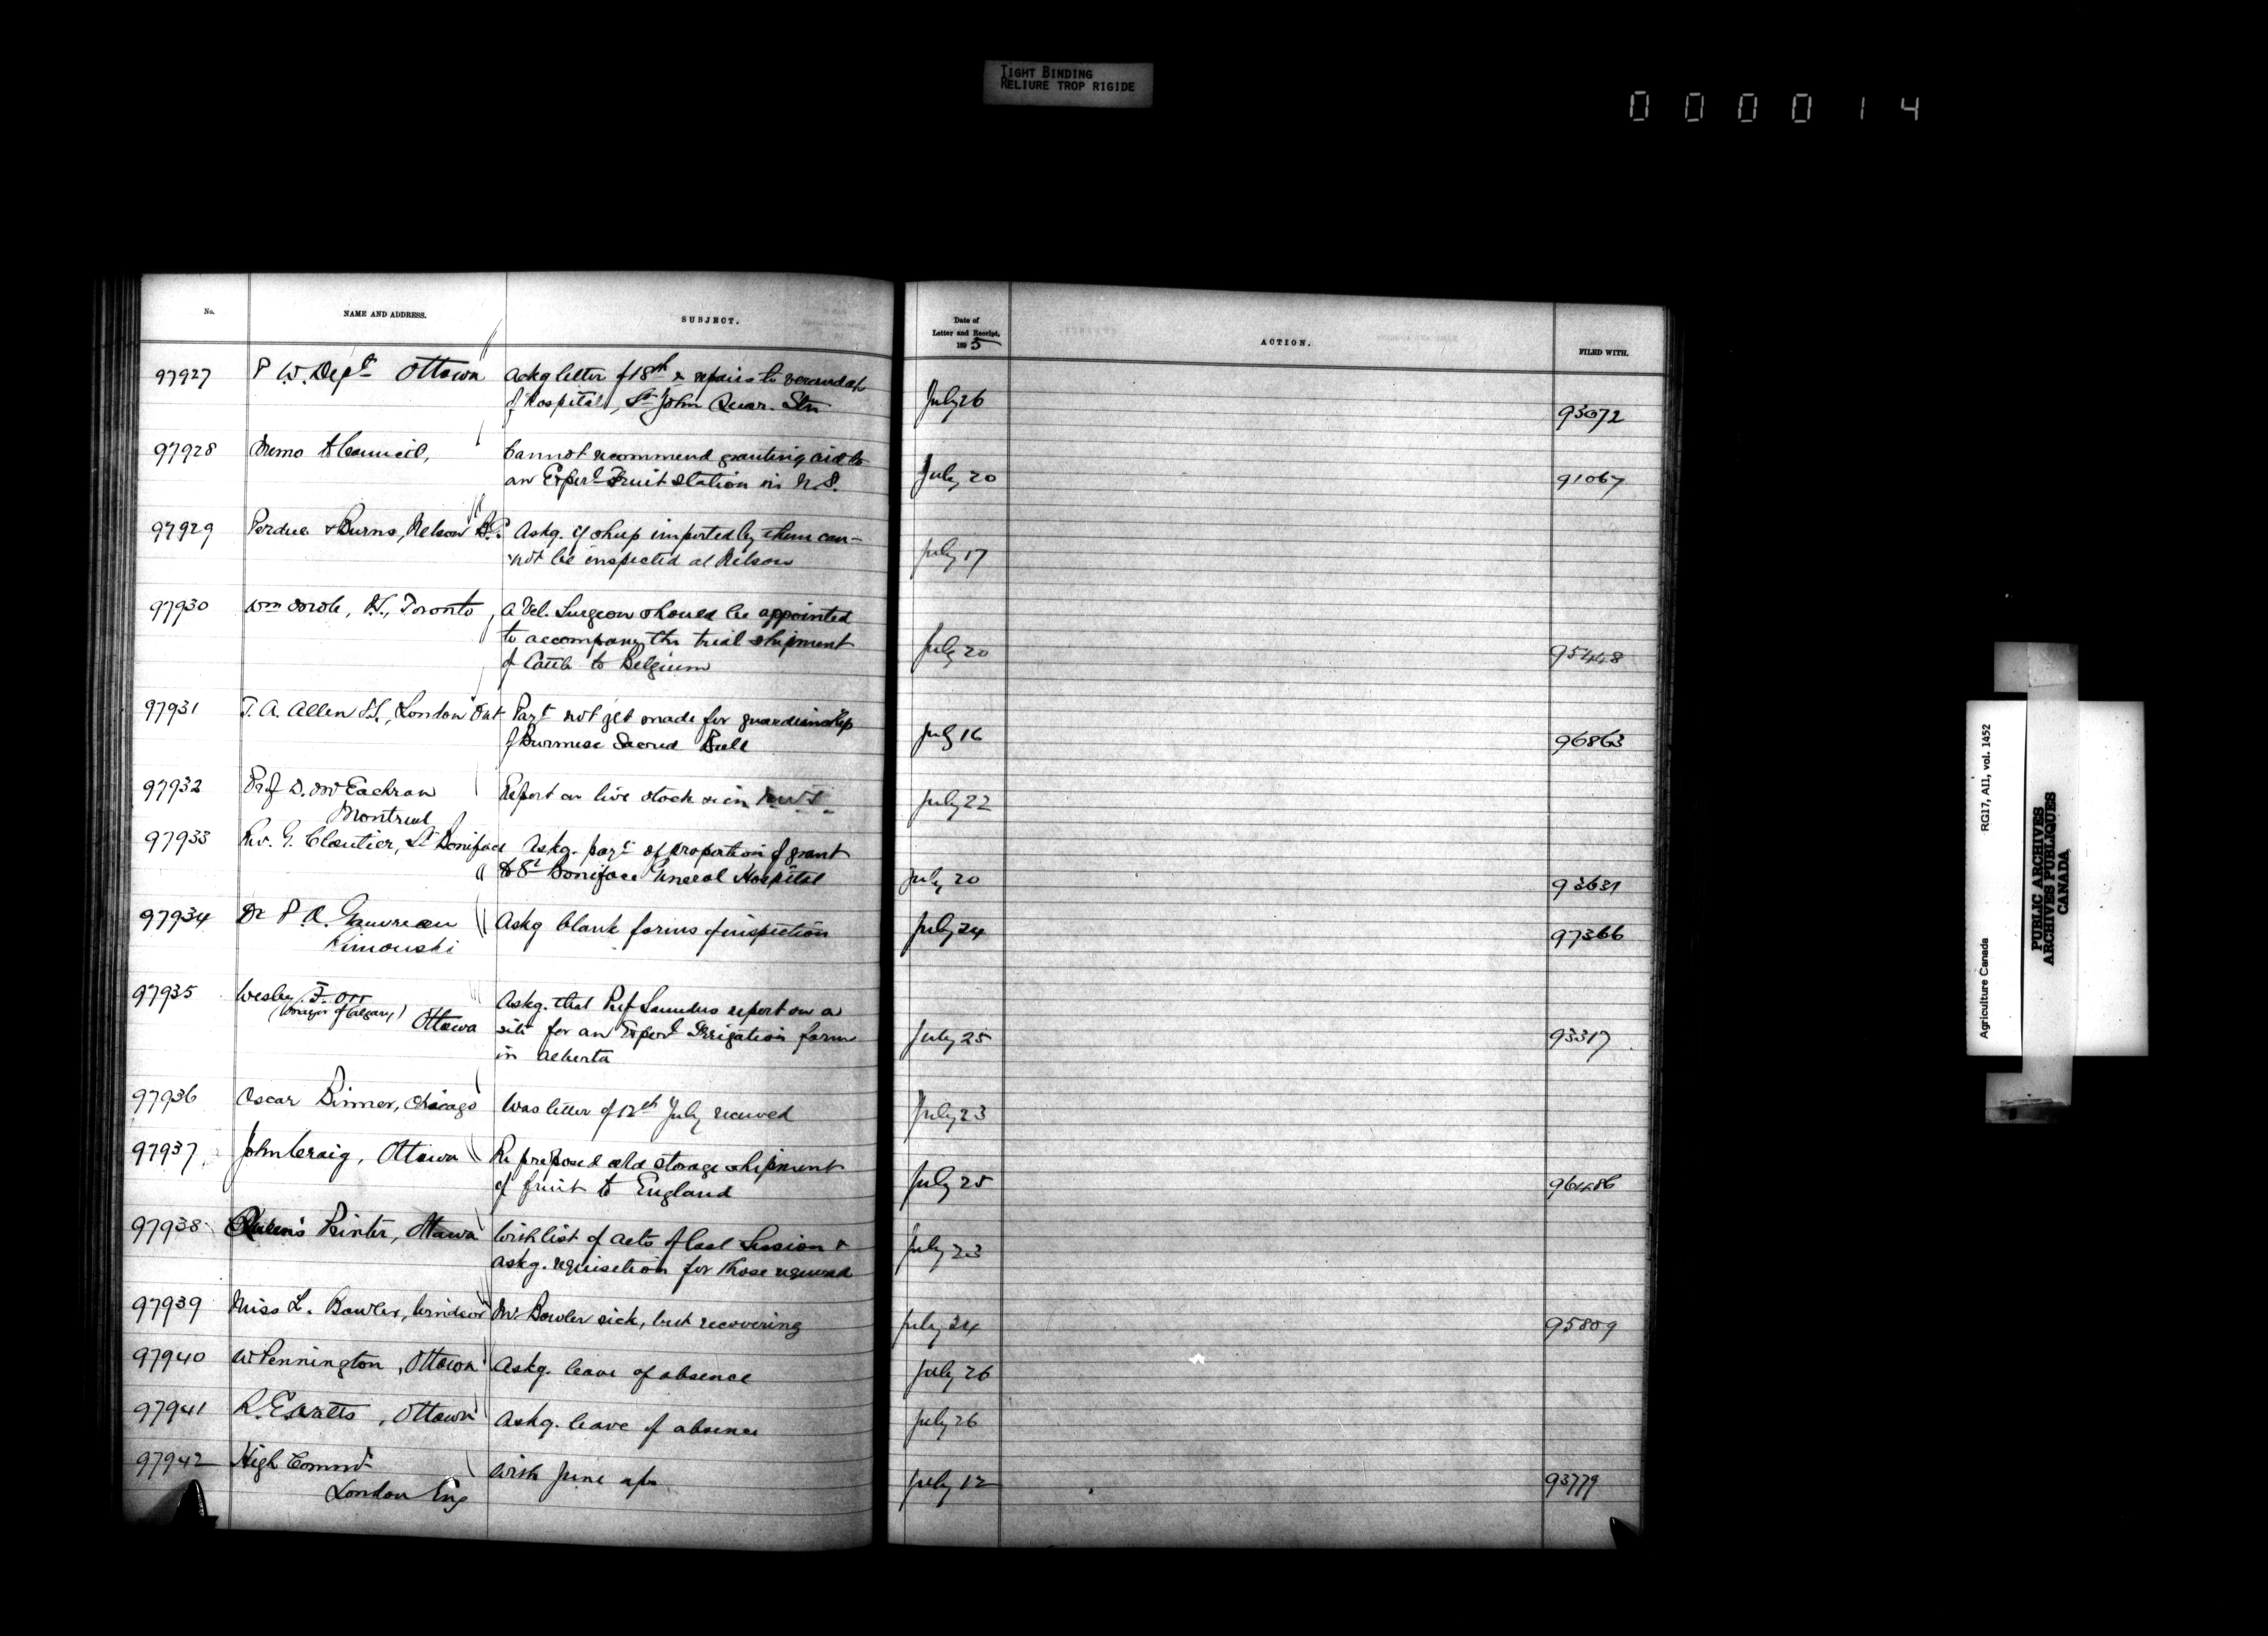 TIGHT BINDING
RELIURE TROP RIGIDE
000014
No.
NAME AND ADDRESS.
SUBJECT.
Date of
Letter and Receipt,
1895
ACTION.
FILED WITH.
97927 P. W. Dept Ottawa Ackg letter of 18th re repairs to verandah
of Hospital, St John Quar. Stn July 26 93072
97928 Memo to Council, Cannot recommend granting aid to
an Experl Fruit Station in N.S. July 20 91067
97929 Perdue & Burns, Nelson B.C. Askg. if sheep imported by them can-
not be inspected at Nelson July 17
97930 Wm Cowle, V.S., Toronto, A Vet. Surgeon should be appointed
to accompany the trial shipment
of Cattle to Belgium July 20 95448
97931 T. A. Allen V.S., London Ont Payt not yet made for guardianship
of Burmese Sacred Bull July 16 96863
97932 Prof D. McEachran Report on live stock in N.W.T. July 22
Montreal
97933 Rev. G. Cloutier, St Boniface Askg. payt of proportion of grant
to St Boniface General Hospital July 20 93631
97934 Dr P. A. Gauvreau Askg blank forms of inspection July 24 97366
Rimouski
97935 Wesley F. Orr Askg. that Prof Saunders report on a
(Mayor of Calgary) Ottawa site for an Experl Irrigation farm July 25 93317
in Alberta
97936 Oscar Binner, Chicago Was letter of 12th July received July 23
97937 John Craig, Ottawa Re proposed cold storage shipment
of fruit to England July 25 96486
97938 Queen's Printer, Ottawa With list of Acts of last Session &
askg. requisition for those required July 23
97939 Miss L. Bowler, Windsor Mr Bowler sick, but recovering July 24 95809
97940 W Pennington, Ottawa Askg. leave of absence July 26
97941 R. E. Watts, Ottawa Askg. leave of absence July 26
97942 High Commr With June a/cs July 12 93779
London Eng
Agriculture Canada RG17, AII, vol. 1452
PUBLIC ARCHIVES
ARCHIVES PUBLIQUES
CANADA